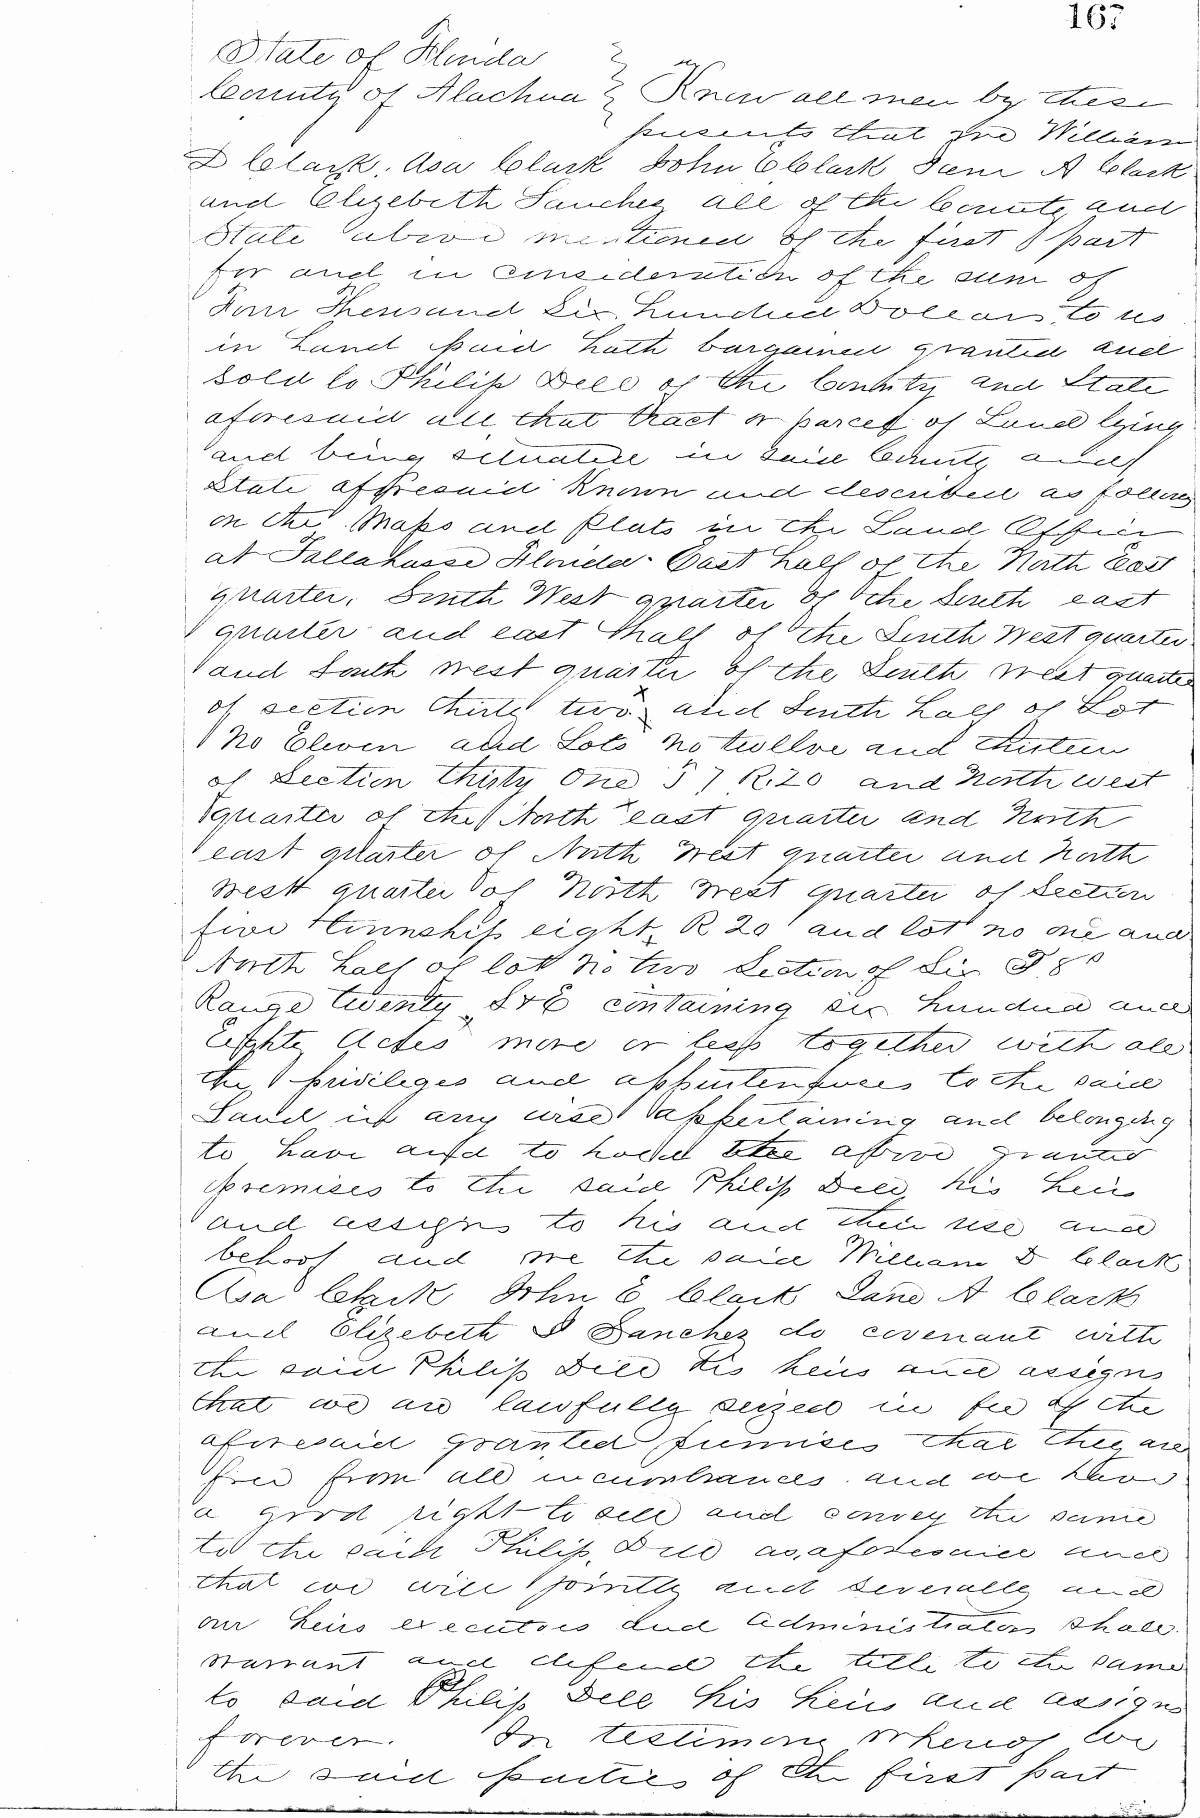 167
State of Florida
County of Alachua } Know all men by these
presents that we William
D Clark. Asa Clark John E Clark Jane A Clark
and Elizebeth Sanchez all of the County and
State above mentioned of the first part
for and in consideration of the sum of
Four Thousand Six hundred Dollars to us
in hand paid hath bargained granted and
sold to Philip Dell of the County and State
aforesaid all that tract or parcel of Land lying
and being situated in said County and
State afforesaid Known and described as follows
on the Maps and plats in the Land Office
at Tallahasse Florida. East half of the North East
quarter. South West quarter of the South east
quarter and east half of the South West quarter
and South west quarter of the South west quarter
of section thirty two and South half of Lot
No Eleven and Lots no twellve and thirteen
of Section thirty One T 7 R.20 and North west
quarter of the North east quarter and North
east quarter of North West quarter and North
west quarter of North West quarter of Section
five township eight R 20 and lot no one and
North half of lot no two Section of Six T 8
Range twenty S&E containing six hundred and
Eighty Acres more or less together with all
the privileges and appurtenances to the said
Land in any wise appertaining and belonging
to have and to hold the above granted
premises to the said Philip Dell his heirs
and assigns to his and their use and
behoof and we the said William D Clark
Asa Clark John E Clark Jane A Clark
and Elizebeth Sanchez do covenant with
the said Philip Dell his heirs and assigns
that we are lawfully seized in fee of the
aforesaid granted premises that they are
free from all incumbrances and we have
a good right to sell and convey the same
to the said Philip Dell as aforesaid and
that we will jointly and severally and
our heirs executors and administrators shall
warrant and defend the title to the same
to said Philip Dell his heirs and assigns
forever. In testimony whereof we
the said parties of the first part